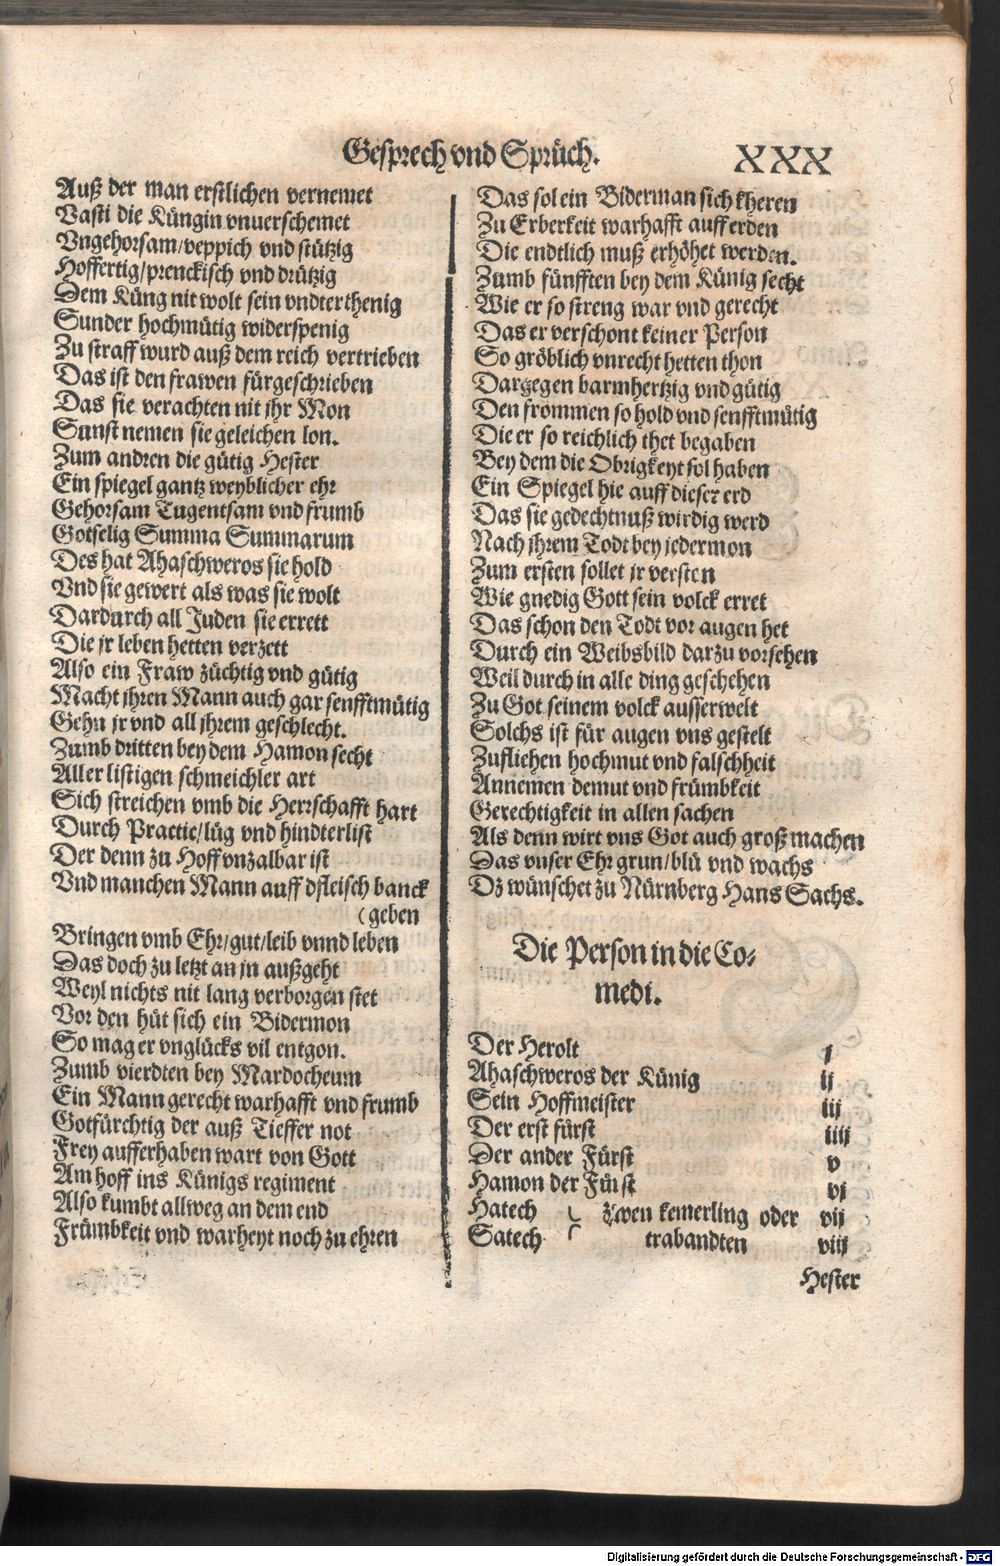 Gesprech vnd Sprüch. XXX
Auß der man erstlichen vernemet
Vasti die Küngin vnuerschemet
Vngehorsam/veppich vnd stützig
Hoffertig/prenckisch vnd drützig
Dem Küng nit wolt sein vndterthenig
Sunder hochmütig widerspenig
Zu straff wurd auß dem reich vertrieben
Das ist den frawen fürgeschrieben
Das sie verachten nit jhr Mon
Sunst nemen sie geleichen lon.
Zum andren die gütig Hester
Ein spiegel gantz weyblicher ehr
Gehorsam Tugentsam vnd frumb
Gotselig Summa Summarum
Des hat Ahaschweros sie hold
Vnd sie gewert als was sie wolt
Dardurch all Juden sie errett
Die jr leben hetten verzett
Also ein Fraw züchtig vnd gütig
Macht jhren Mann auch gar senfftmütig
Gehn jr vnd all jhrem geschlecht.
Zumb dritten bey dem Hamon secht
Aller listigen schmeichler art
Sich streichen vmb die Herrschafft hart
Durch Practic/lüg vnd hindterlist
Der denn zu Hoff vnzalbar ist
Vnd manchen Mann auff dfleisch banck
(geben
Bringen vmb Ehr/gut/leib vnnd leben
Das doch zu letzt an jn außgeht
Weyl nichts nit lang verborgen stet
Vor den hüt sich ein Bidermon
So mag er vnglücks vil entgon.
Zumb vierdten bey Mardocheum
Ein Mann gerecht warhafft vnd frumb
Gotfürchtig der auß Tieffer not
Frey aufferhaben wart von Gott
Am hoff ins Künigs regiment
Also kumbt allweg an dem end
Frümbkeit vnd warheyt noch zu ehren
Das sol ein Biderman sich kheren
Zu Erberkeit warhafft auff erden
Die endtlich muß erhöhet werden.
Zumb fünfften bey dem Künig secht
Wie er so streng war vnd gerecht
Das er verschont keiner Person
So gröblich vnrecht hetten thon
Dargegen barmhertzig vnd gütig
Den frommen so hold vnd senfftmütig
Die er so reichlich thet begaben
Bey dem die Obrigkeyt sol haben
Ein Spiegel hie auff dieser erd
Das sie gedechtnuß wirdig werd
Nach jhrem Todt bey jedermon
Zum ersten sollet jr versten
Wie gnedig Gott sein volck erret
Das schon den Todt vor augen het
Durch ein Weibsbild darzu vorsehen
Weil durch in alle ding geschehen
Zu Got seinem volck ausserwelt
Solchs ist für augen vns gestelt
Zufliehen hochmut vnd falschheit
Annemen demut vnd frümbkeit
Gerechtigkeit in allen sachen
Als denn wirt vns Got auch groß machen
Das vnser Ehr grun/blü vnd wachs
Dz wünschet zu Nürnberg Hans Sachs.
Die Person in die Co-
medi.
Der Herolt j
Ahaschweros der Künig ij
Sein Hoffmeister iij
Der erst fürst iiij
Der ander Fürst v
Hamon der Fürst vj
Hatech } zwen kemerling oder vij
Satech trabandten viij
Hester
Digitalisierung gefördert durch die Deutsche Forschungsgemeinschaft - DFG